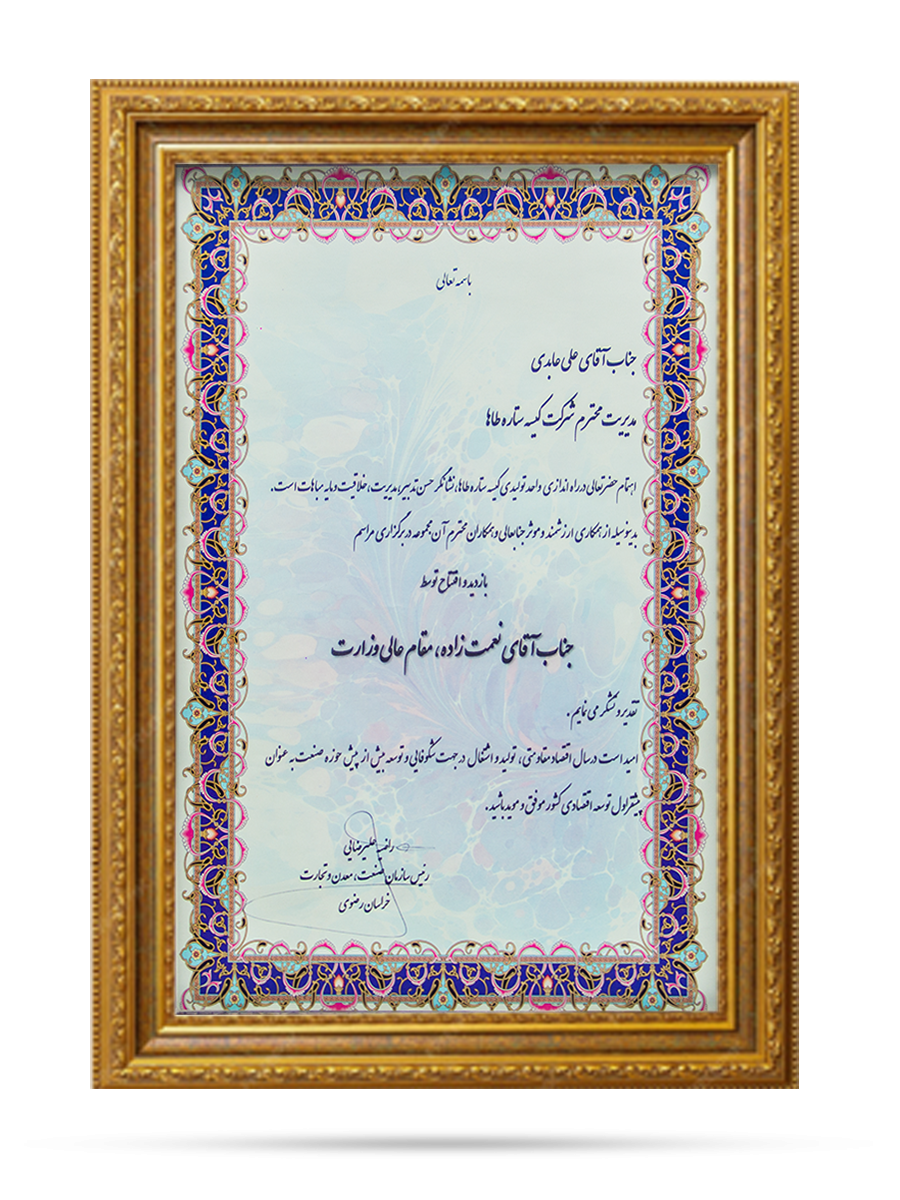 باسمه تعالی
جناب آقای علی عابدی
مدیریت محترم شرکت کیسه ستاره طاها
اهتمام حضرتعالی در راه اندازی واحد تولیدی کیسه ستاره طاها، نشانگر حسن تدبیر، مدیریت، خلاقیت و مایه مباهات است.
بدینوسیله از همکاری ارزشمند و موثر جنابعالی و همکاران محترم آن مجموعه در برگزاری مراسم
بازدید و افتتاح توسط
جناب آقای نعمت زاده، مقام عالی وزارت
تقدیر و تشکر می نمایم.
امید است در سال اقتصاد مقاومتی، تولید و اشتغال در جهت شکوفایی و توسعه بیش از پیش حوزه صنعت به عنوان
پیشقراول توسعه اقتصادی کشور موفق و موید باشید.
راضیه علیرضائی
رئیس سازمان صنعت، معدن و تجارت
خراسان رضوی